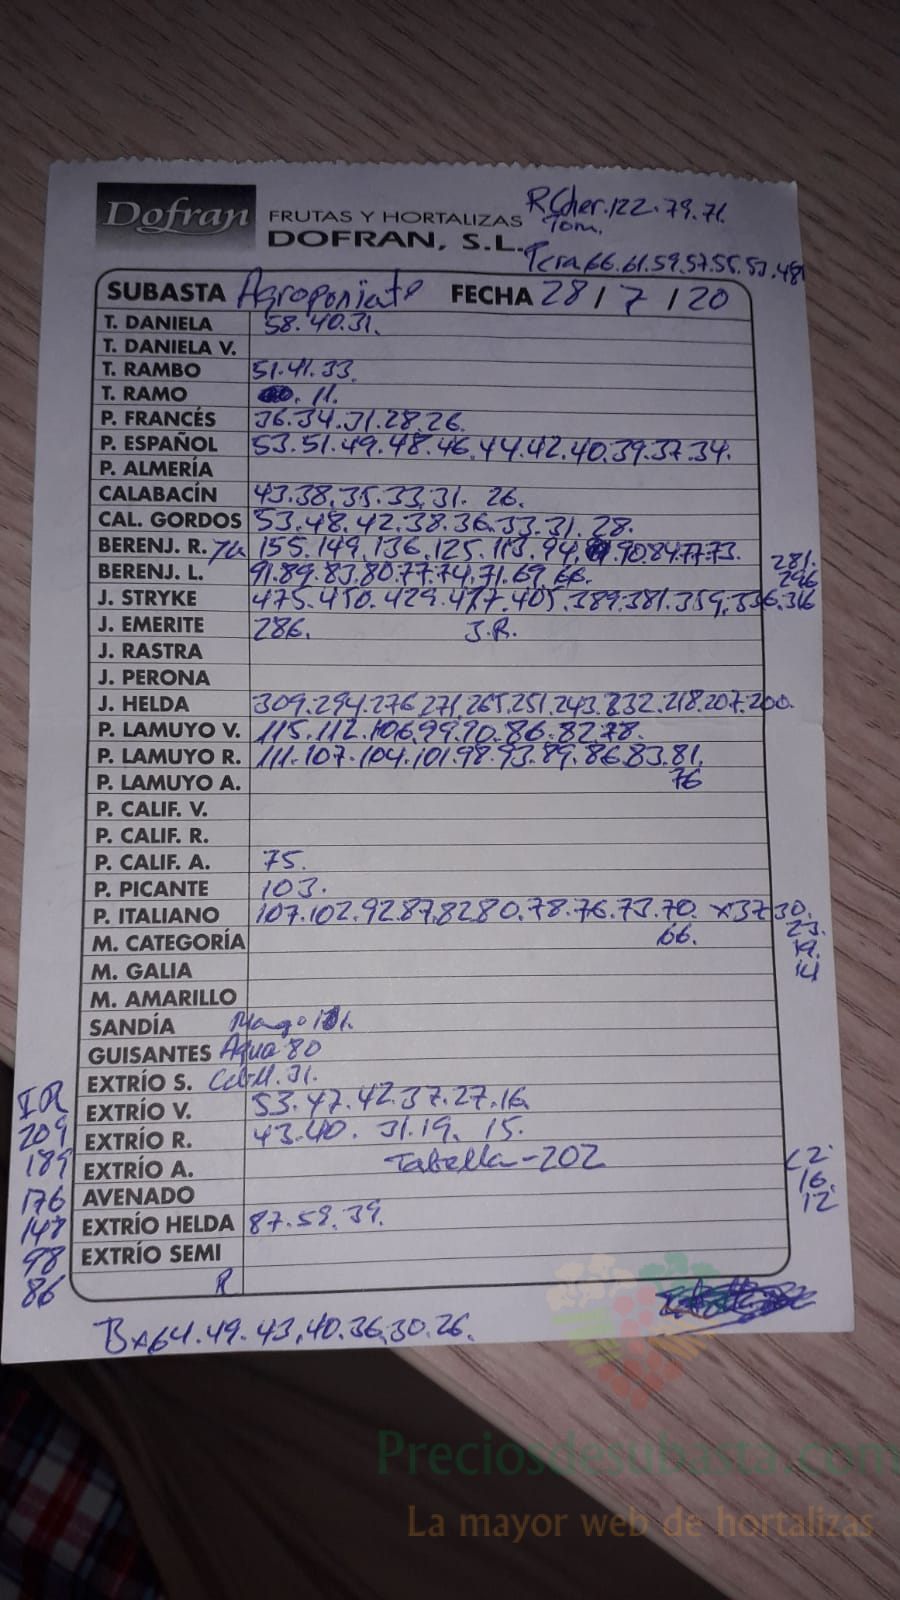 Dofran FRUTAS Y HORTALIZAS DOFRAN, S.L.
R Cher. 122. 79. 71.
Tom.
66. 61. 59. 57. 55. 53. 48
SUBASTA Agroponiente FECHA 28 / 7 / 20
T. DANIELA 58. 40. 31.
T. DANIELA V.
T. RAMBO 51. 41. 33.
T. RAMO 11.
P. FRANCÉS 36. 34. 31. 28. 26.
P. ESPAÑOL 53. 51. 49. 48. 46. 44. 42. 40. 39. 37. 34.
P. ALMERÍA
CALABACÍN 43. 38. 35. 33. 31. 26.
CAL. GORDOS 53. 48. 42. 38. 36. 33. 31. 28.
BERENJ. R. 155. 149. 136. 125. 113. 94. 90. 84. 77. 73.
281.
BERENJ. L. 91. 89. 83. 80. 77. 74. 71. 69. 66.
296
J. STRYKE 475. 450. 429. 417. 405. 389. 381. 359. 336. 316
J. EMERITE 286. J.R.
J. RASTRA
J. PERONA
J. HELDA 309. 294. 276. 271. 265. 251. 243. 232. 218. 207. 200.
P. LAMUYO V. 115. 112. 106. 99. 90. 86. 82. 78.
P. LAMUYO R. 111. 107. 104. 101. 98. 93. 89. 86. 83. 81.
76
P. LAMUYO A.
P. CALIF. V.
P. CALIF. R.
P. CALIF. A. 75.
P. PICANTE 103.
P. ITALIANO 107. 102. 92. 87. 82 80. 78. 76. 73. 70. x37 30.
23.
66.
19.
14
M. CATEGORÍA
M. GALIA
M. AMARILLO
SANDÍA Mango
GUISANTES Agua 80
EXTRÍO S. 31.
EXTRÍO V. 53. 47. 42. 37. 27. 16
EXTRÍO R. 43. 40. 31. 19. 15.
EXTRÍO A. Tabella - 202
AVENADO
16.
12
EXTRÍO HELDA 87. 59. 39.
EXTRÍO SEMI
R
209
189
176
147
98
86
Bx 64. 49. 43. 40. 36. 30. 26.
Preciosdesubasta.com
La mayor web de hortalizas